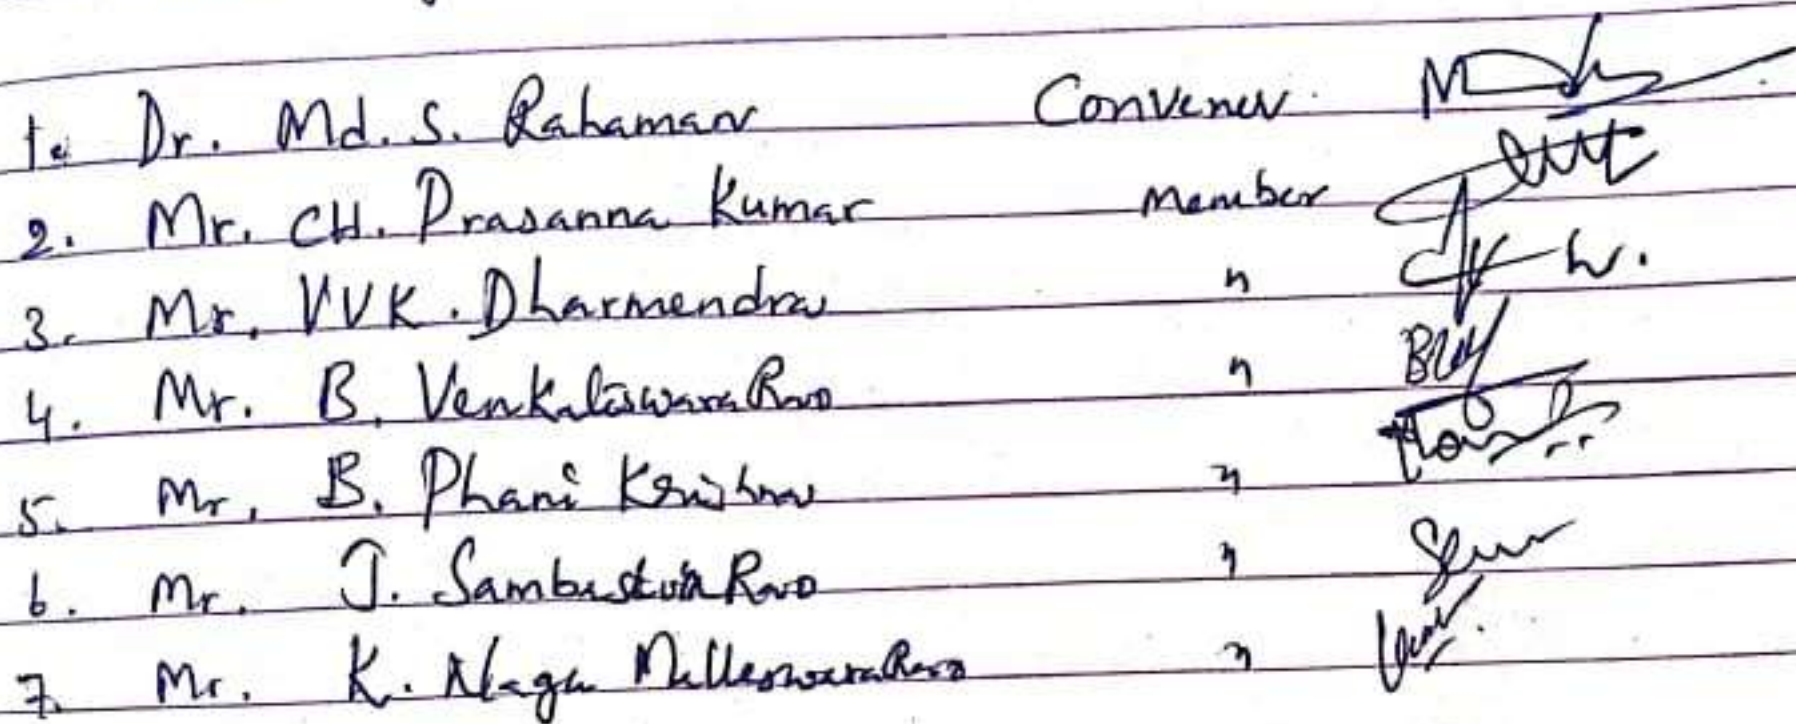 1. Dr. Md. S. Rahaman Convener
2. Mr. CH. Prasanna Kumar Member
3. Mr. VVK. Dharmendra "
4. Mr. B. Venkateswara Rao "
5. Mr. B. Phani Krishna "
6. Mr. J. Sambasiva Rao "
7. Mr. K. Naga Malleswara Rao "